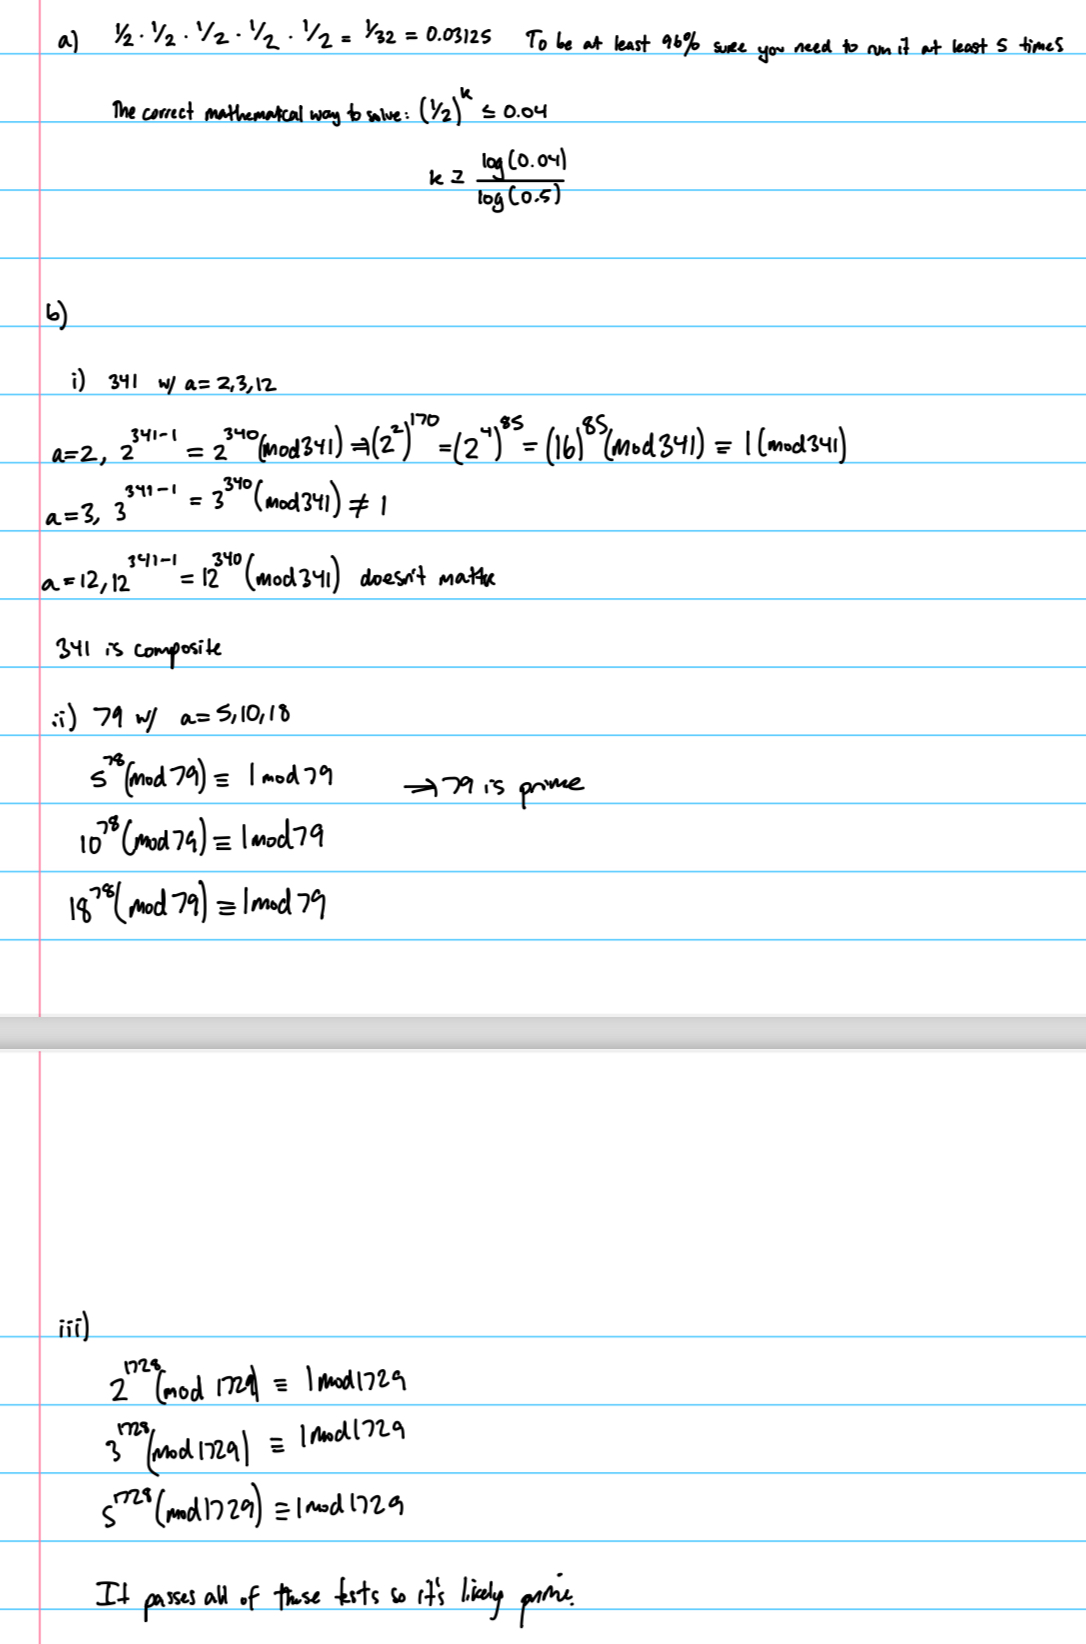 a) 1/2 · 1/2 · 1/2 · 1/2 · 1/2 = 1/32 = 0.03125 To be at least 96% sure you need to run it at least 5 times
The correct mathematical way to solve: (1/2)^k ≤ 0.04
k ≥ log(0.04) / log(0.5)
b)
i) 341 w/ a = 2,3,12
a=2, 2^341-1 = 2^340 (mod 341) ⇒ (2^2)^170 = (2^4)^85 = (16)^85 (mod 341) ≡ 1 (mod 341)
a=3, 3^341-1 = 3^340 (mod 341) ≠ 1
a=12, 12^341-1 = 12^340 (mod 341) doesn't matter
341 is composite
ii) 79 w/ a=5,10,18
5^78 (mod 79) ≡ 1 mod 79 → 79 is prime
10^78 (mod 79) ≡ 1 mod 79
18^78 (mod 79) ≡ 1 mod 79
iii)
2^1728 (mod 1729) ≡ 1 mod 1729
3^1728 (mod 1729) ≡ 1 mod 1729
5^1728 (mod 1729) ≡ 1 mod 1729
It passes all of those tests so it's likely prime.